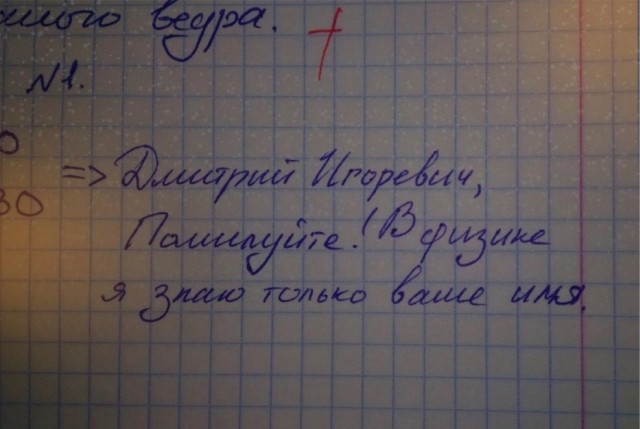 ведра. +
N1.
0
30
=> Дмитрий Игоревич,
Помилуйте! В физике
я знаю только ваше имя.